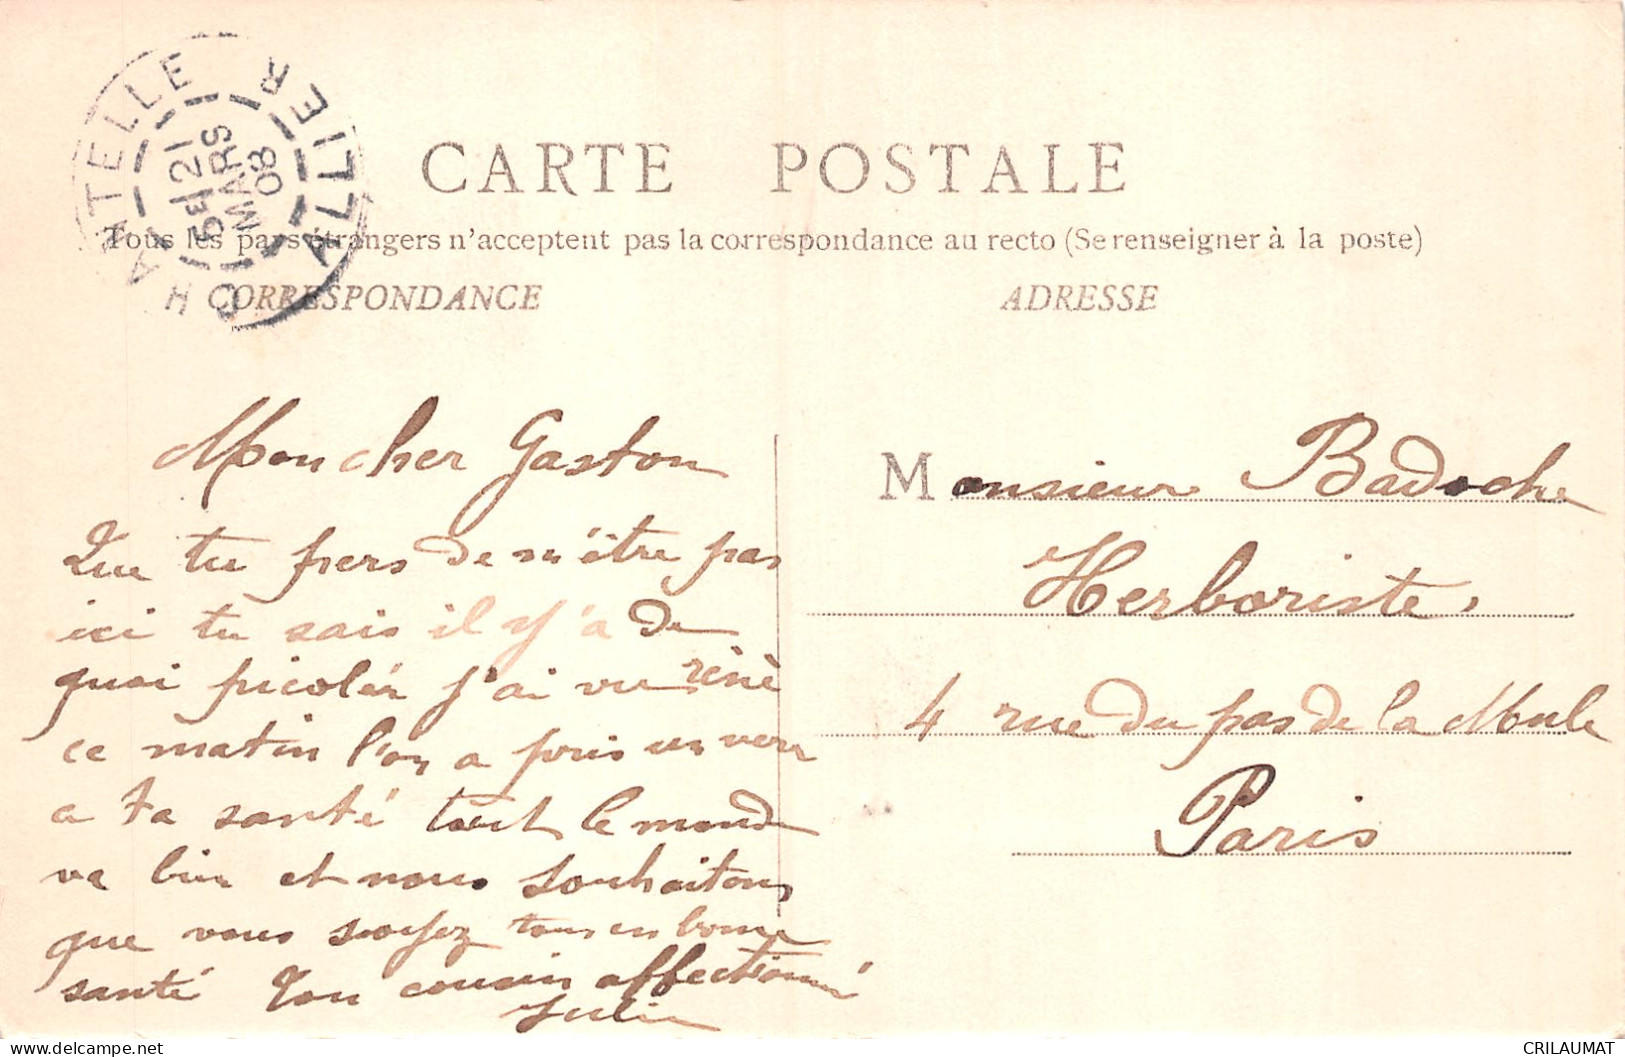 CHATELLE ALLIER
5E 21
MARS
08
CARTE POSTALE
Tous les pays étrangers n'acceptent pas la correspondance au recto (Se renseigner à la poste)
CORRESPONDANCE
ADRESSE
Mon cher Gaston
Que tu pers de n'être pas
ici tu sais il y'a de
quoi picolér j'ai vu réné
ce matin l'on a pris un verre
a ta santé tout le monde
va bien et nous souhaitons
que vous soyez tous en bonne
santé Ton cousin affectionné
Julien
Monsieur Badoche
Herboriste,
4 rue du pas de la Mule
Paris
delcampe.net
CRILAUMAT